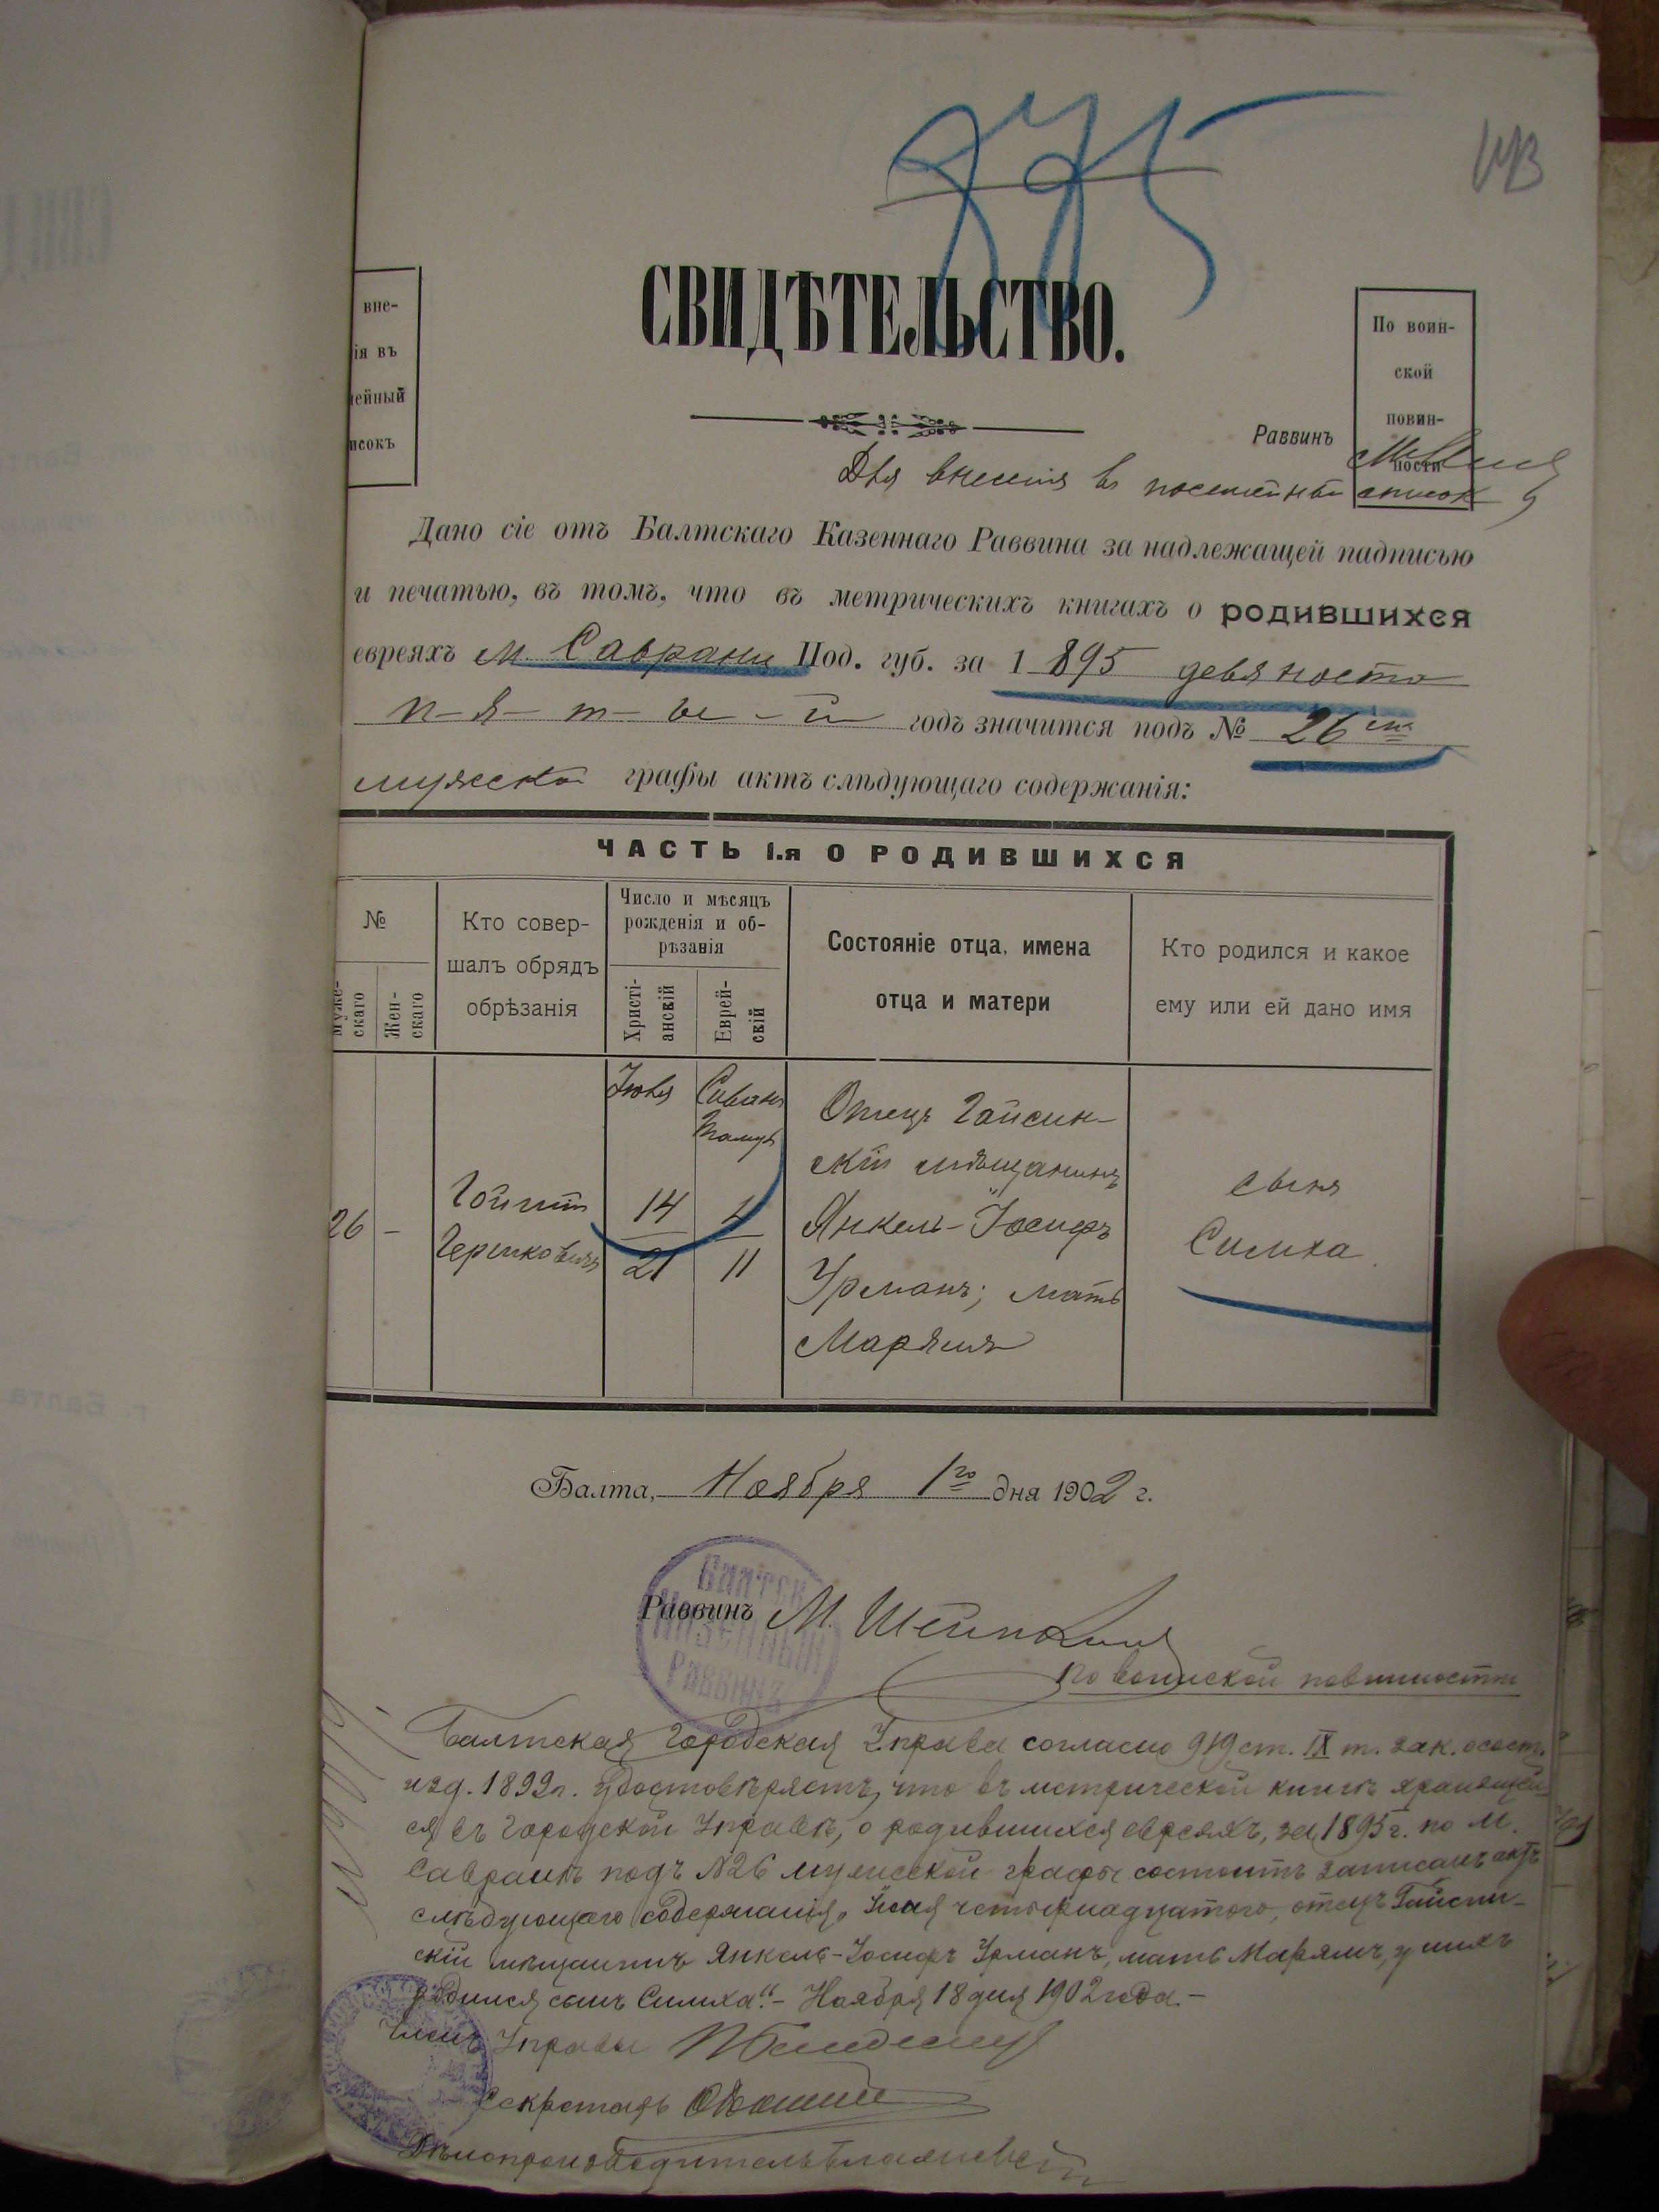 СВИДѢТЕЛЬСТВО.
вне-
ія въ
ейный
исокъ
По воин-
ской
повин-
ности
Раввинъ
Для внесенія въ посемейный список
Дано сіе отъ Балтскаго Казеннаго Раввина за надлежащей надписью
и печатью, въ томъ, что въ метрическихъ книгахъ о родившихся
евреяхъ м. Саврани Под. губ. за 1 895 девяносто
п-я-т-ы-й годъ значится подъ № 26
мужской графы актъ слѣдующаго содержанія:
ЧАСТЬ I.я О РОДИВШИХСЯ
№
Муже-
скаго
Жен-
скаго
Кто совер-
шалъ обрядъ
обрѣзанія
Число и мѣсяцъ
рожденія и об-
рѣзанія
Христі-
анскій
Еврей-
скій
Состояніе отца, имена
отца и матери
Кто родился и какое
ему или ей дано имя
26
-
Гершковичъ
14
21
4
11
Отецъ Гайсин-
скій мѣщанинъ
Янкель-Іосифъ
Урманъ; мать
Марямъ
сынъ
Симха
Балта, Ноября 1го дня 1902 г.
Раввинъ М.
БАЛТСК
КАЗЕННЫЙ
РАВВИНЪ
По воинской повинности
Балтская Городская Управа согласно 919 ст. IX т. зак. о сост.
изд. 1899 г. удостовѣряетъ, что въ метрической книгѣ хранящей-
ся въ Городской Управѣ, о родившихся евреяхъ, за 1895 г. по м.
Саврань подъ №26 мужеской графы состоитъ записанъ актъ
слѣдующаго содержанія, четырнадцатого, отецъ Гайсин-
скій мѣщанинъ Янкель-Іосифъ Урманъ, мать Марямъ, у нихъ
родился сынъ Симха".- Ноября 18 дня 1902 года.-
Членъ Управы
Секретарь
Дѣлопроизводитель